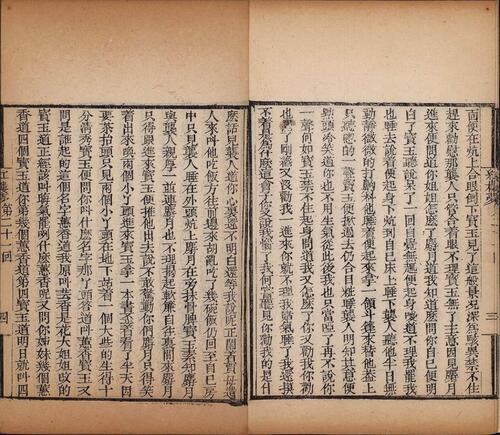 紅樓夢
第二十一回
三
面便在炕上合眼倒下寶玉見了這般景况深為駭異禁不住
趕來勸慰那襲人只管合着眼不理寶玉無了主意因見麝月
進來便問道你姐姐怎麼了麝月道我知道麼問你自己便明
白了寶玉聽說呆了一回自覺無趣便起身噯道不理我罷我
也睡去說着便起身下炕到自己床上睡下襲人聽他半日無
動靜微微的打齁料他睡着便起來拿一領斗篷來替他蓋上
只聽唿的一聲寶玉便掀過去仍合目粧睡襲人明知其意便
點頭冷笑道你也不用生氣從此後我也只當啞了再不說你
一聲何如寶玉禁不住起身問道我又怎麼了你又勸我你勸
也罷了剛纔又沒勸我一進來你就不理我賭氣睡了我還摸
不着是為什麼這會你又說我惱了我何嘗聽見你勸我的是什
麼話呢襲人道你心裏還不明白還等我說呢正鬧着賈母遣
人來叫他吃飯方往前邊來胡亂吃了幾碗飯仍回至自己房
中只見襲人睡在外頭炕上麝月在旁抹骨牌寶玉素知麝月
與襲人親厚一並連麝月也不理揭起軟簾自往裏間來麝月
只得跟進來寶玉便推他出去說不敢驚動你們麝月只得笑
着出來喚兩個小丫頭進來寶玉拿一本書歪着看了半天因
要茶抬頭只見兩個小丫頭在地下站着一個大些的生得十
分清秀寶玉便問你叫什麼名字那丫頭答道叫蕙香寶玉又
問是誰起的這個名字蕙香道我原叫芸香是花大姐姐改的
寶玉道正經該叫晦氣罷咧什麼蕙香呢又問你姊妹幾個蕙
香道四個寶玉道你第幾個蕙香道第四寶玉道明日就叫四
紅樓夢
第二十一回
四